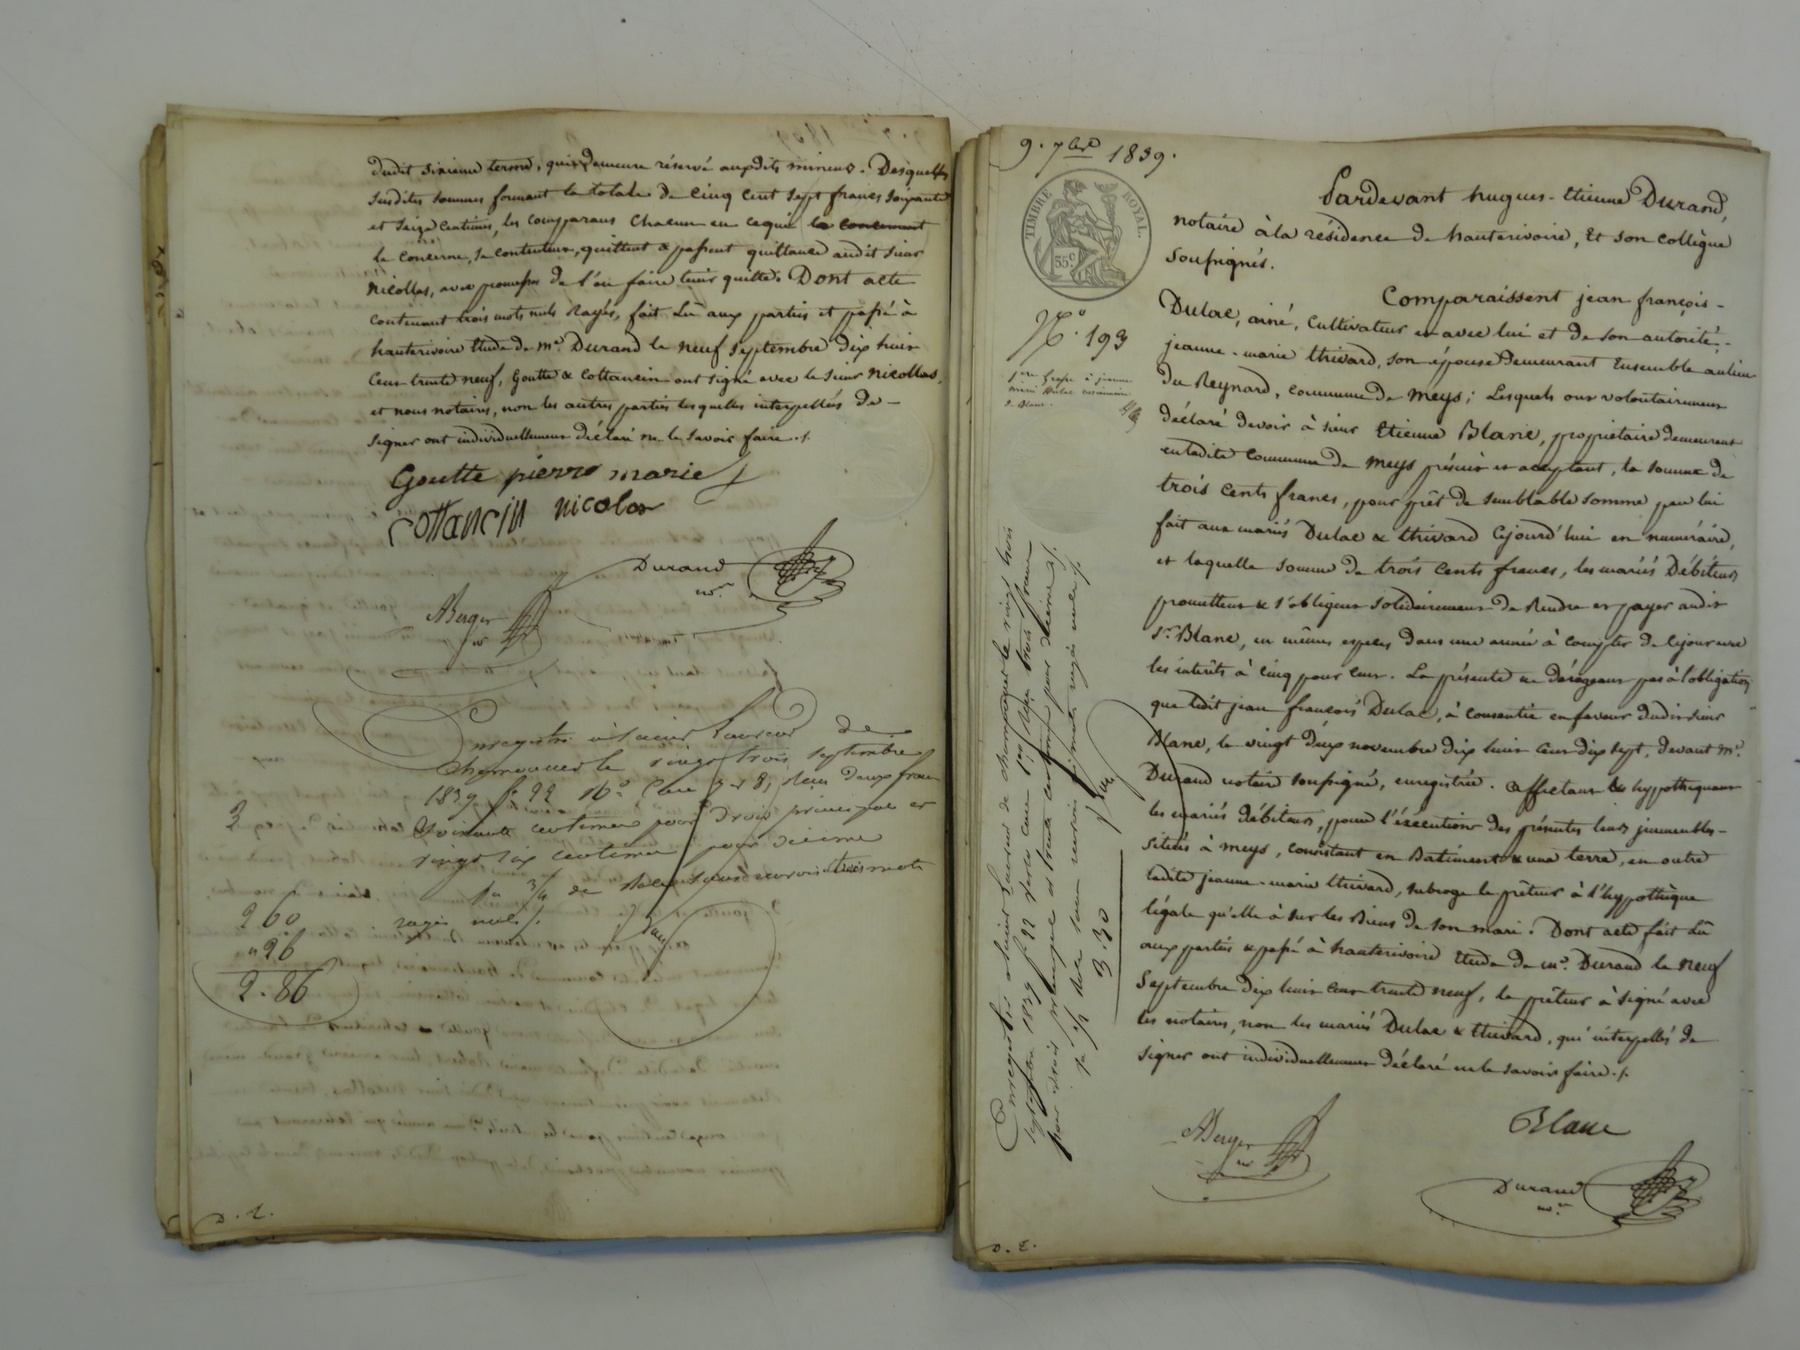 dudit sixieme terme, qui demeure réservé auxdits mineurs. Desquelles
susdites sommes formant la totale de cinq cent sept francs soixante
et seize centimes, les comparans chacun en ce qui le concernent
le concerne, se contentent, quittent & passent quittance audit sieur
Nicollas, avec promesse de l'en faire tenir quitte. Dont acte
contenant trois mots nuls rayés, fait lu aux parties et passé à
hauterivoire étude de me. Durand le neuf septembre dix huit
cent trente neuf, Goutte & Cottancin ont signé avec le sieur Nicollas,
et nous notaires, non les autres parties lesquelles interpellés de
signer ont individuellement déclaré ne le savoir faire ./.
Goutte pierre marie
Cottancin nicolas
Durand
nre.
ABerger
nre
Enregistré à Saint Laurent de
Chamousset le vingt trois septembre
1839 fo 22 Ro Case 7 et 8, reçu deux francs
Soixante centimes pour droit principal et
vingt six centimes pour décime
3
rayés nuls ./.
2 60
" 26
2. 86
D. E.
9. 7bre 1839.
TIMBRE ROYAL.
35 c
No. 193
1ere Grosse à jeanne
marie
& Blanc.
Pardevant hugues-Etienne Durand,
notaire à la résidence de hauterivoire, Et son collègue
soussignés.
Comparaissent jean françois-
Dulac, ainé, cultivateur et avec lui et de son autorité,
jeanne-marie thivard, son épouse Demeurant Ensemble au lieu
du Reynard, commune de Meys; Lesquels ont volontairement
déclaré devoir à sieur Etienne Blanc, propriétaire demeurant
en ladite commune de Meys présent et acceptant, la somme de
trois cents francs, pour prêt de semblable somme par lui
fait aux mariés Dulac & thivard cejourd'hui en numéraire,
et laquelle somme de trois cents francs, les mariés Débiteurs
promettent & s'obligent solidairement de Rendre et payer audit
sr. Blanc, en mêmes espèces dans une année à compter de ce jour avec
les intérêts à cinq pour cent. La présente ne dérogeant pas à l'obligation
que ledit jean françois Dulac, à consentie en faveur dudit sieur
Blanc, le vingt deux novembre dix huit cent dix sept, devant me.
Durand notaire soussigné, enregistrée. affectant & hypothéquant
les mariés débiteurs, pour l'exécution des présentes leurs immeubles-
situés à Meys, consistant en Batiment & une terre, en outre
ladite jeanne-marie thivard, subroge le prêteur à l'hypothèque
légale qu'elle à sur les Biens de son mari. Dont acte fait lu
aux parties & passé à hauterivoire Etude de me. Durand le neuf
Septembre dix huit cent trente neuf, le prêteur à signé avec
les notaires, non les mariés Dulac & thivard, qui interpellés de
signer ont individuellement déclaré ne le savoir faire ./.
Blanc
ABerger
nre
Durand
nre
Enregistré à Saint Laurent de Chamousset le vingt trois
septembre 1839 fo 22 Verso Case 1re reçu trois francs
pour droit principal et trente centimes pour décime ./.
3.30
D. E.